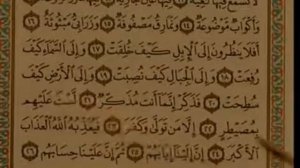 لَا تَسْمَعُ فِيهَا لَاغِيَةً ١١ فِيهَا عَيْنٌ جَارِيَةٌ
وَأَكْوَابٌ مَوْضُوعَةٌ ١٤ وَنَمَارِقُ مَصْفُوفَةٌ ١٥ وَزَرَابِيُّ مَبْثُوثَةٌ ١٦
أَفَلَا يَنْظُرُونَ إِلَى الْإِبِلِ كَيْفَ خُلِقَتْ ١٧ وَإِلَى السَّمَاءِ كَيْفَ
رُفِعَتْ ١٨ وَإِلَى الْجِبَالِ كَيْفَ نُصِبَتْ ١٩ وَإِلَى الْأَرْضِ كَيْفَ
سُطِحَتْ ٢٠ فَذَكِّرْ إِنَّمَا أَنْتَ مُذَكِّرٌ ٢١ لَسْتَ عَلَيْهِمْ
بِمُصَيْطِرٍ ٢٢ إِلَّا مَنْ تَوَلَّى وَكَفَرَ ٢٣ فَيُعَذِّبُهُ اللَّهُ الْعَذَابَ
الْأَكْبَرَ ٢٤ إِنَّ إِلَيْنَا إِيَابَهُمْ ٢٥ ثُمَّ إِنَّ عَلَيْنَا حِسَابَهُمْ ٢٦